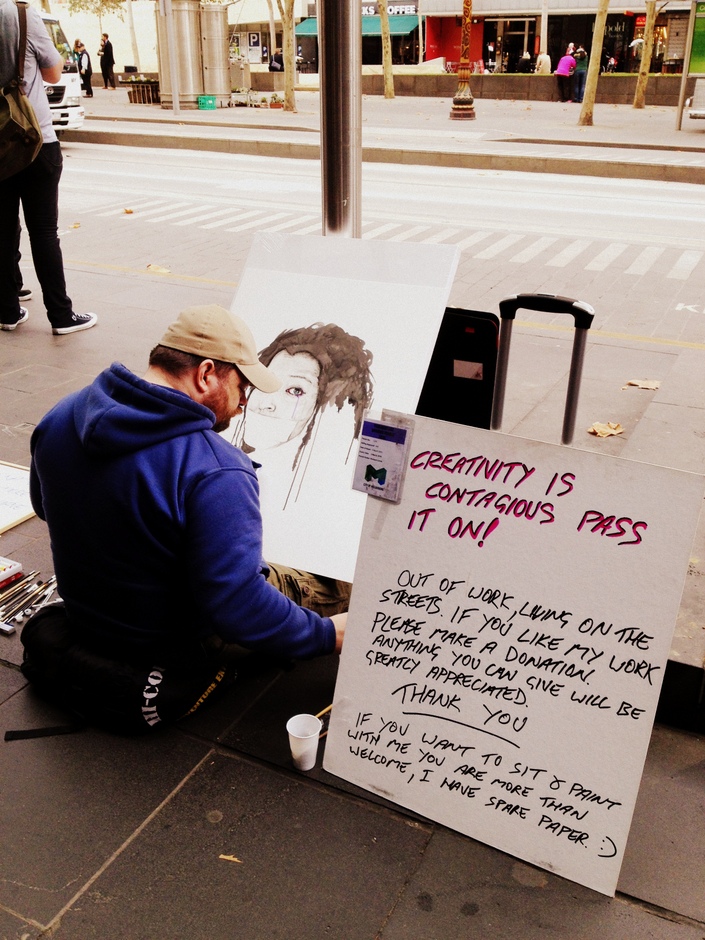 KS COFFEE
P
CREATIVITY IS
CONTAGIOUS PASS
IT ON!
OUT OF WORK, LIVING ON THE
STREETS. IF YOU LIKE MY WORK
PLEASE MAKE A DONATION.
ANYTHING YOU CAN GIVE WILL BE
GREATLY APPRECIATED.
THANK YOU
IF YOU WANT TO SIT & PAINT
WITH ME YOU ARE MORE THAN
WELCOME, I HAVE SPARE PAPER. :)
HI-CO